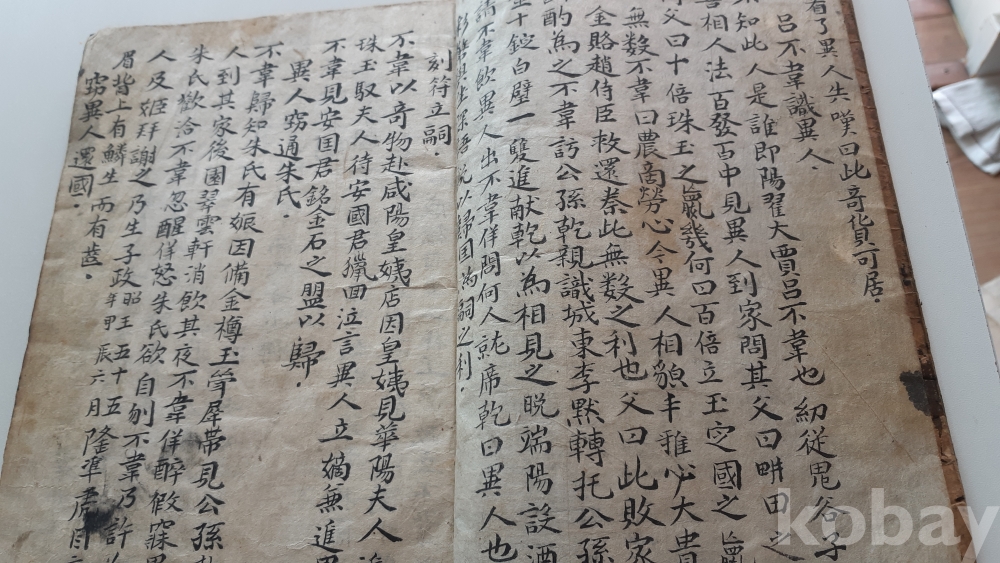 有了異人失嘆曰此奇貨可居
呂不韋識異人
知此人是誰即陽翟大賈呂不韋也幼從鬼谷子
相人法百發百中見異人到家問其父曰畊田之
父曰十倍珠玉之贏幾何曰百倍立主定國之贏
無數不韋曰農商勞心今異人相貌丰雅必大貴
金賂趙侍臣救還秦此無數之利也父曰此敗家
酌為之不韋訪公孫乾親識城東李默轉托公孫
十錠白璧一雙進献乾以為相見之晚端陽設酒
請不韋飲異人出不韋佯問何人就席乾曰異人也
以歸国為嗣之利
刻符立嗣
不韋以奇物赴咸陽皇姨店因皇姨見華陽夫人
珠玉馭夫人待安國君獵回泣言異人立嫡無進
不韋見安国君銘金石之盟以歸
異人窃通朱氏
不韋歸知朱氏有娠因備金樽玉斝犀帶見公孫
人到其家後園翠雲軒消飲其夜不韋佯醉假寐
朱氏歡洽不韋忽醒佯怒朱氏欲自刎不韋乃許
人及姬拜謝之乃生子政昭王五十五年甲辰六月隆準虎目
眉背上有鱗生而有齒
窃異人還國
kobay